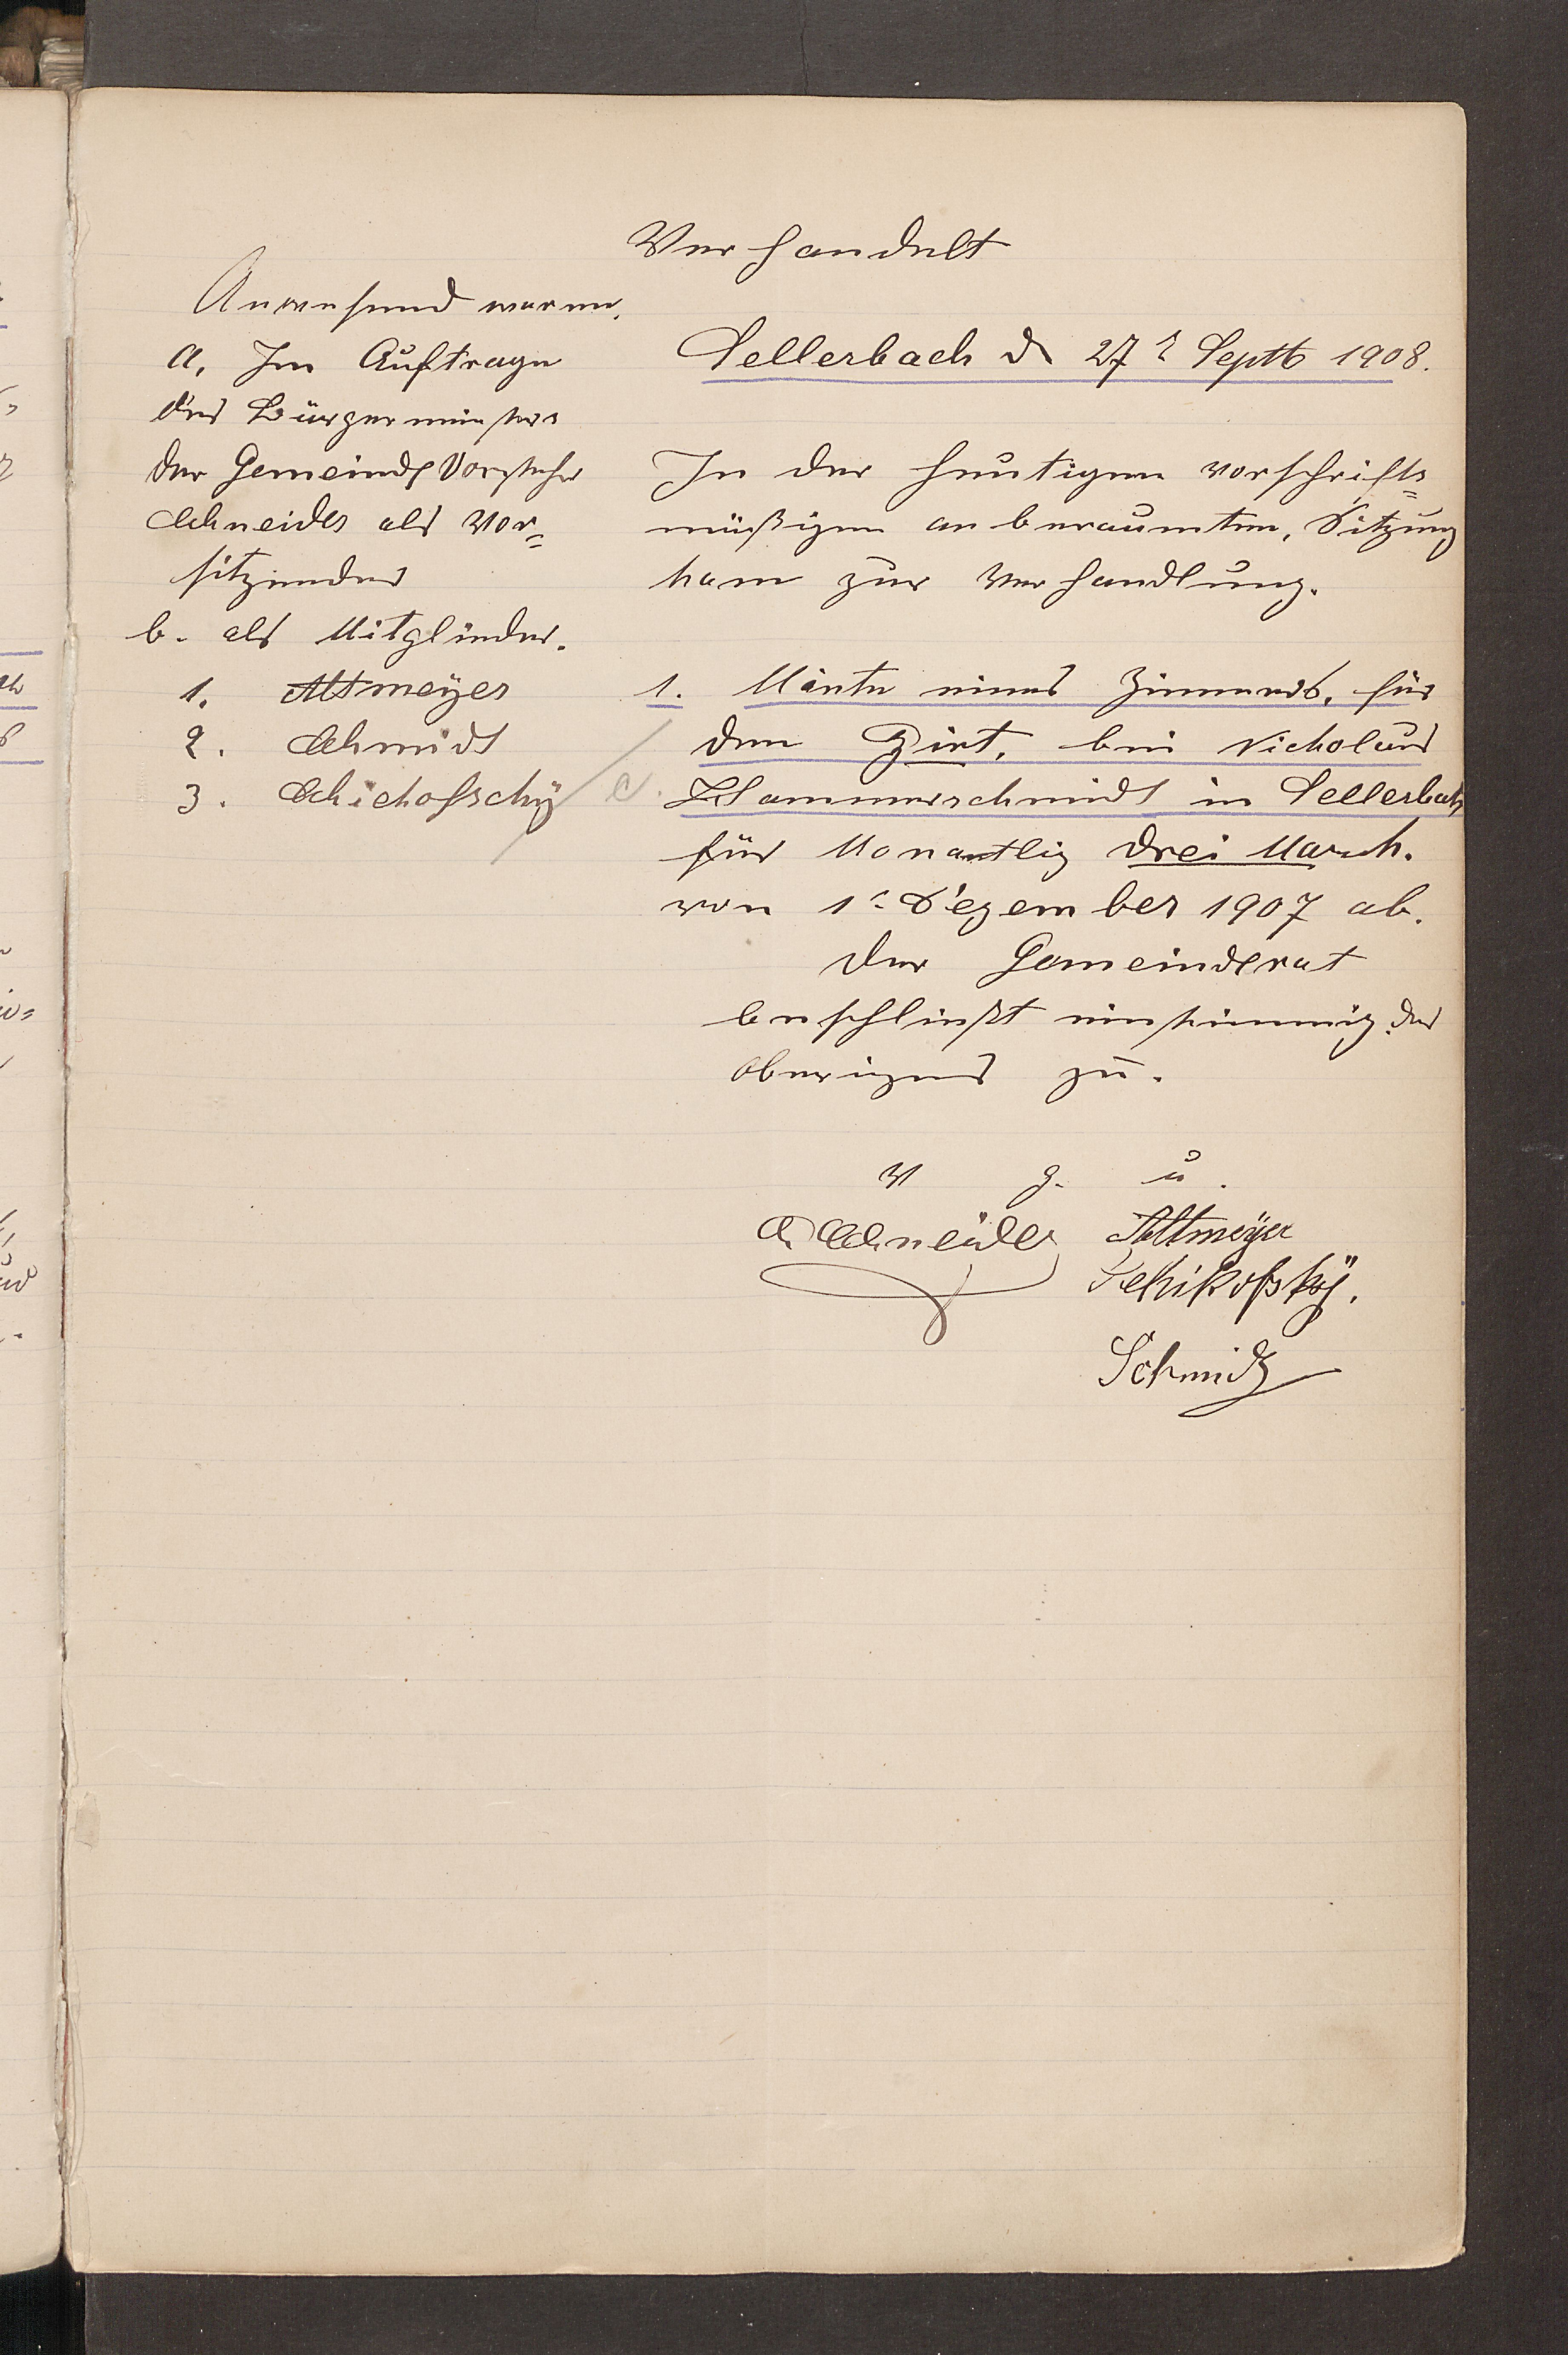 Verhandelt
Anwesend waren.
a, Im Auftrage
des Bürgermeisters
der Gemeinde Vorsteher
Schneider als Vor=
sitzender
b. als Mitglieder.
1. Altmeyer
2. Schmidt
3. Schichofschÿ
Sellerbach d 27t Septb 1908.
In der heutigen vorschrifts=
mäßigen an beraumten, Sitzung
kam zur Verhandlung.
1. Miete eines Zimmers, für
den Hirt, bei Nicholaus
Hammerschmidt in Sellerbach
für Monantlig drei Mark.
von 1t Dezember 1907 ab.
Der Gemeinderat
beschließt einstimmig das
oberigens zu.
v g. u.
Schneider Altmeÿer
Schikofskÿ.
Schmidt